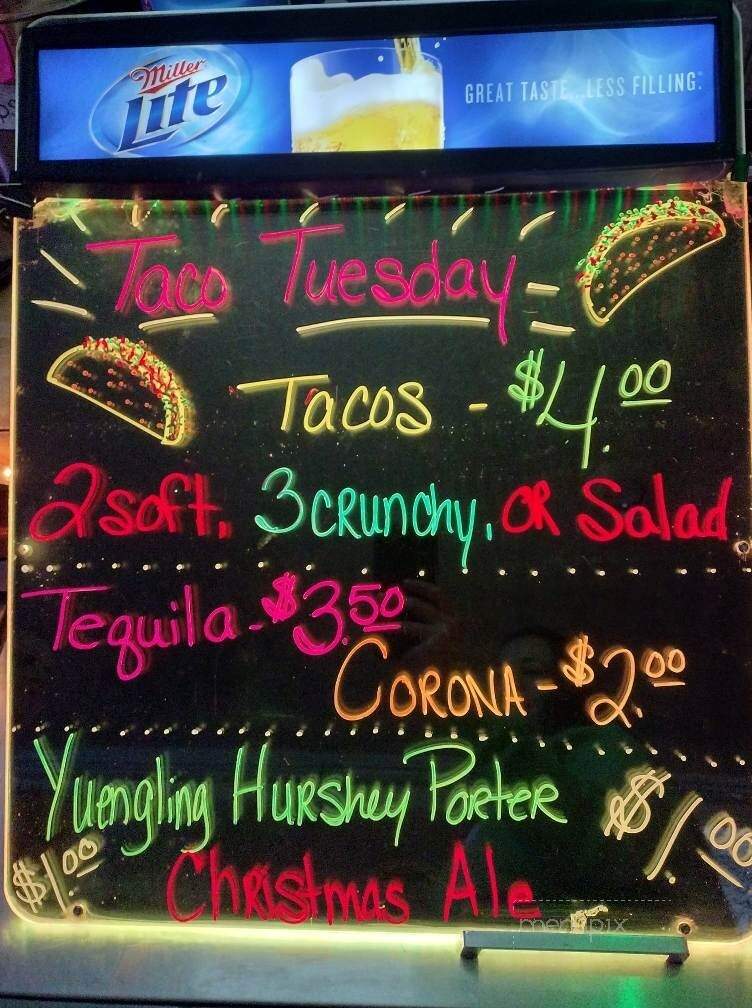 Miller Lite
GREAT TASTE...LESS FILLING.
Taco Tuesday
Tacos - $4.00
2 soft, 3 crunchy, OR Salad
Tequila - $3.50
CORONA - $2.00
Yuengling Hurshey Porter $1.00
$1.00 Christmas Ale
menupix